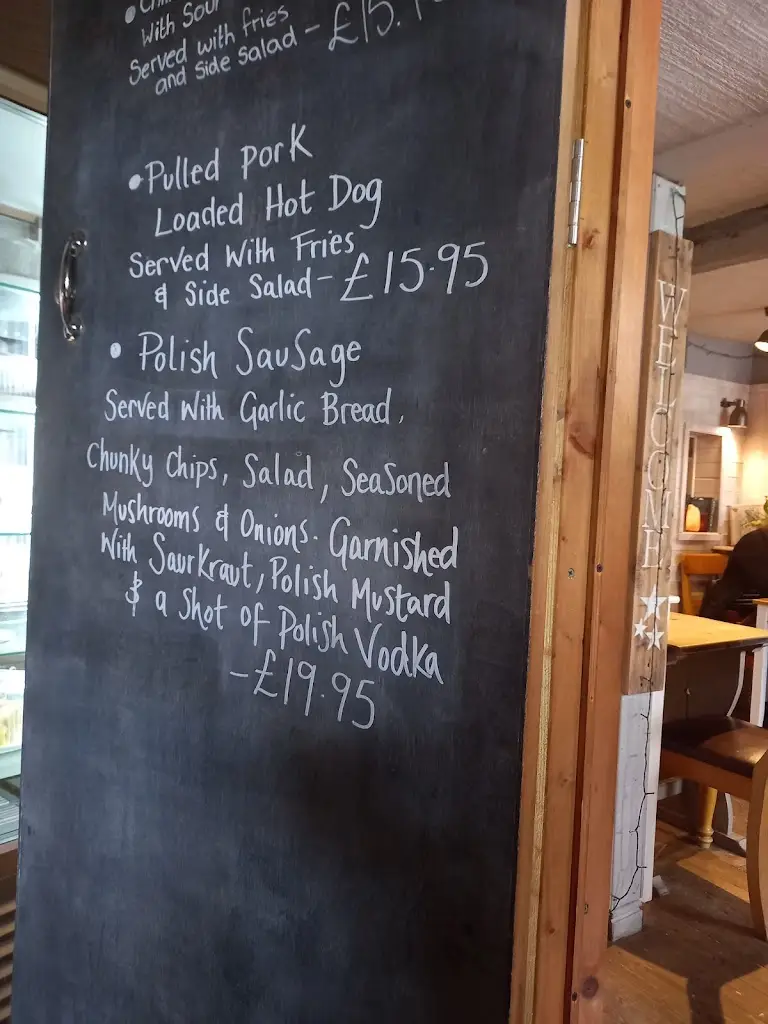 With Sour
Served with fries
and Side Salad - £15.
• Pulled Pork
Loaded Hot Dog
Served With Fries
& Side Salad - £15.95
• Polish Sausage
Served With Garlic Bread,
Chunky Chips, Salad, Seasoned
Mushrooms & Onions. Garnished
With Saurkraut, Polish Mustard
& a Shot of Polish Vodka
- £19.95
WELCOME